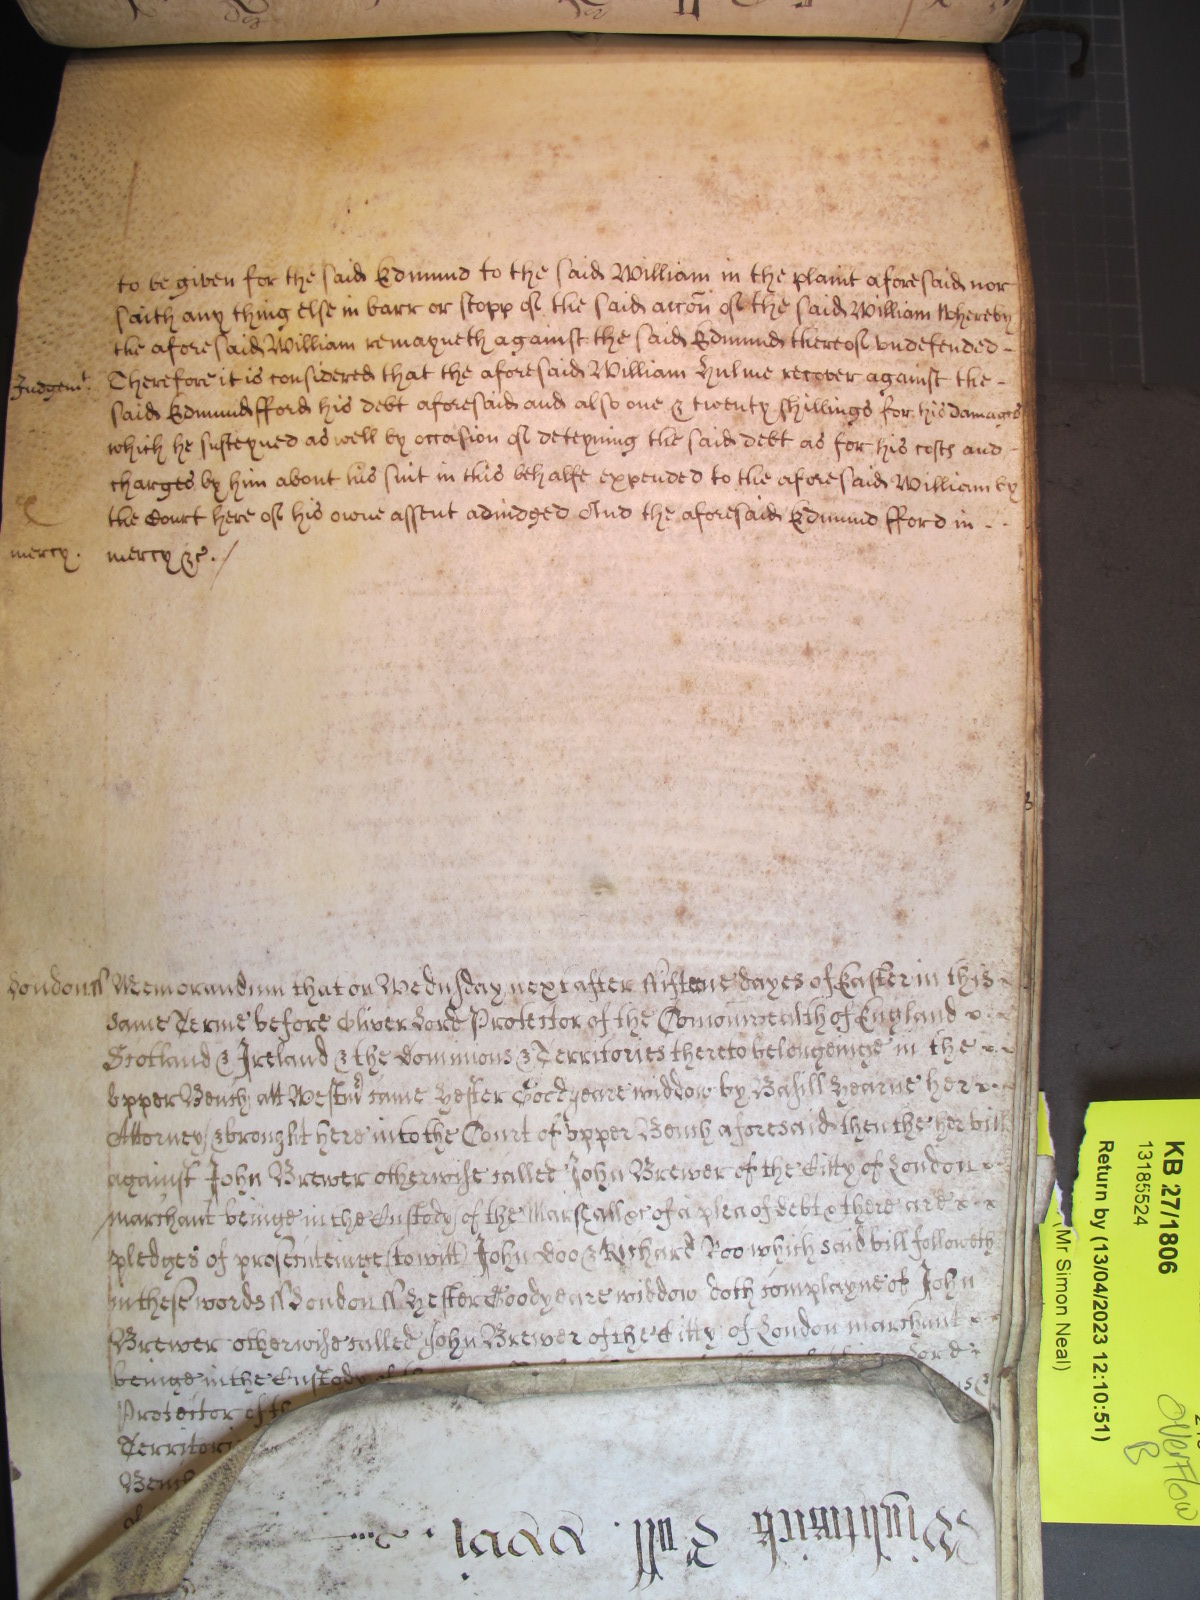 to be given for the said Edmund to the said William in the plaint aforesaid nor
saith any thing else in barr or stopp of the said accōn of the said William Whereby
the aforesaid William remayneth against the said Edmund thereof undefended -
Judgemt. Therefore it is considered that the aforesaid William Hulme recover against the -
said Edmund fford his debt aforesaid and also one & twenty shillings for his damages
which he susteyned as well by occasion of deteyning the said debt as for his costs and
charges by him about his suit in this behalfe expended to the aforesaid William by
the Court here of his owne assent adiudged And the aforesaid Edmund fford in - -
mercy. mercy &c. /
London ss Memorandum that on Wednsday next after fifteene dayes of Easter in this
same Terme before Oliver Lord Protector of the Comonwealth of England
Scotland & Ireland & the dominions & Territories thereto belongeinge in the
upper Bench att Westm̄ came Hester Goodyeare widdow by Basill Hearne her
Attorney & brought here into the Court of upper Bench aforesaid then the her bill
against John Brewer otherwise called John Brewer of the Citty of London
marchant beinge in the Custody of the Marshall &c of a plea of debt & there are
pledges of prosecuteinge (to witt) John Doo & Richard Roo which said bill followeth
in these words ss London ss Hester Goodyeare widdow doth complayne of John
Brewer otherwise called John Brewer of the Citty of London marchant
beinge in the Custody of Lord
Protector of
Territori
Bench
of
KB 27/1806
13185524
Return by (13/04/2023 12:10:51)
(Mr Simon Neal)
Overflow
B